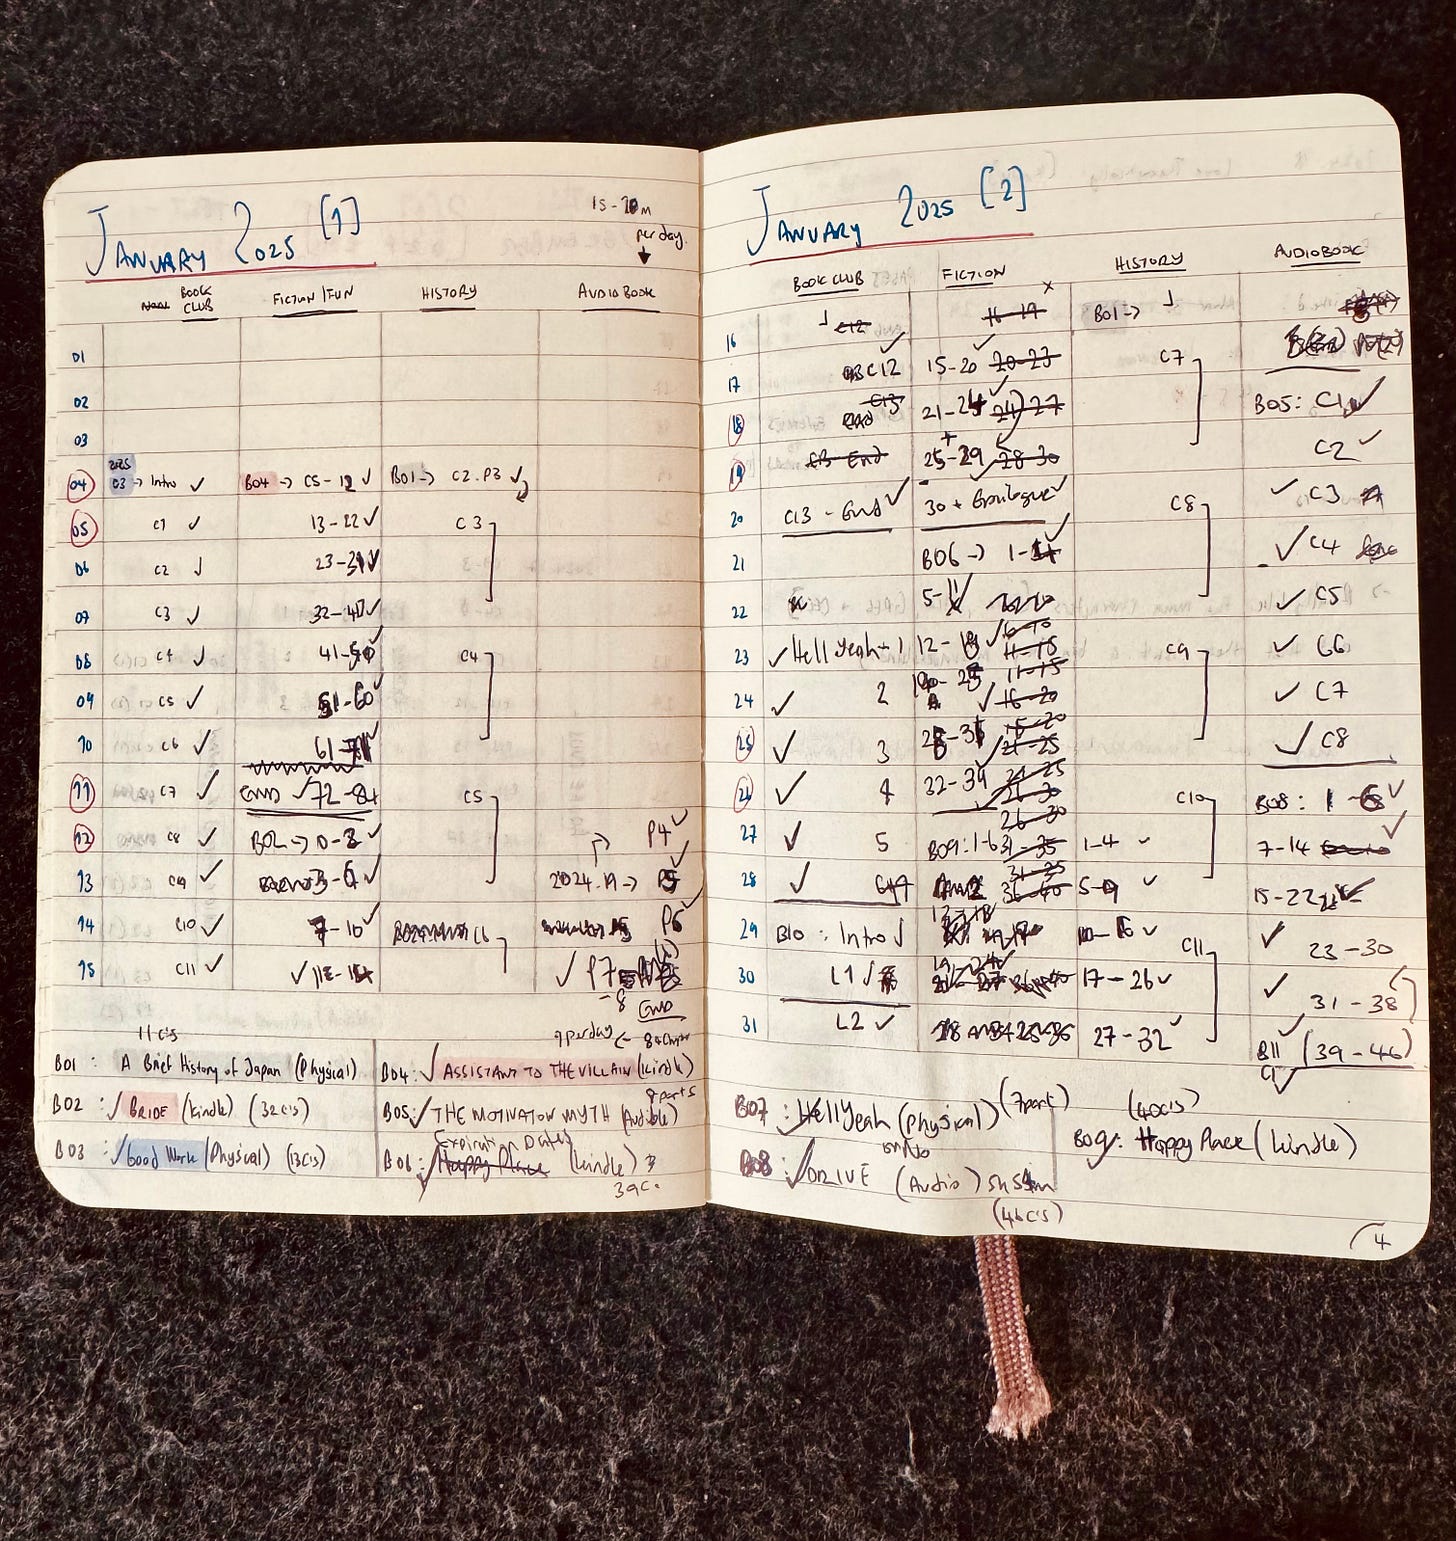 JANUARY 2025 [1]
15-20m
per day.
BOOK CLUB FICTION/FUN HISTORY AUDIOBOOK
01
02
03
04 2025 03 → Intro ✓ B04 → C5-12 ✓ B01 → C2.P3 ✓
05 C1 ✓ 13-22 ✓ C3
06 C2 ✓ 23-31 ✓
07 C3 ✓ 32-40 ✓
08 C4 ✓ 41-50 ✓ C4
09 C5 ✓ 51-60 ✓
10 C6 ✓ 61-71 ✓
11 C7 ✓ END ✓ 72-84 C5
12 C8 ✓ B02 → 0-2 ✓ P4 ✓
13 C9 ✓ 3-6 ✓ 2024.19 → P5 ✓
14 C10 ✓ 7-10 ✓ C6 P6 ✓
15 C11 ✓ ✓ 11-14 ✓ P7
-8 END
11 C's
B01: A Brief History of Japan (Physical)
B02: ✓ BRIDE (Kindle) (32c's)
B03: ✓ Good Work (Physical) (13c's)
B04: ✓ ASSISTANT TO THE VILLAIN (Kindle)
8 parts
B05: ✓ THE MOTIVATION MYTH (Audible)
Expiration Dates
B06: ✓ Happy Place (Kindle)
39c.
JANUARY 2025 [2]
BOOK CLUB FICTION HISTORY AUDIOBOOK
16 C12 16-19 x B01 →
17 C12 ✓ 15-20 ✓ 20-23 C7
18 C13 END 21-24 ✓ 24-27 B05: C1 ✓
19 C13 END 25-29 ✓ 28-30 C2 ✓
20 C13 - End ✓ 30 + Epilogue ✓ C8 ✓ C3
21 B06 → 1-4 ✓ ✓ C4
22 5-11 ✓ ✓ C5
23 ✓ Hell yeah + 1 12-18 ✓ 6-10 11-15 C9 ✓ C6
24 ✓ 2 ✓ 11-15 16-20 ✓ C7
25 ✓ 3 ✓ 15-20 21-25 ✓ C8
26 ✓ 4 32-39 ✓ 21-25 26-30 C10 B08: 1-6 ✓
27 ✓ 5 B09: 1-6 26-30 31-35 1-4 ✓ 7-14 ✓
28 ✓ 31-35 36-40 5-9 ✓ 15-22 ✓
29 B10: Intro ✓ 10-16 ✓ C11 ✓ 23-30
30 L1 ✓ 17-26 ✓ ✓ 31-38
31 L2 ✓ 27-32 ✓ B11 (39-46)
C1 ✓
B07: Hell Yeah (Physical) (7part)
or No
B08: ✓ DRIVE (Audio) 5h 54m
(46c's)
(40c's)
B09: Happy Place (Kindle)
4